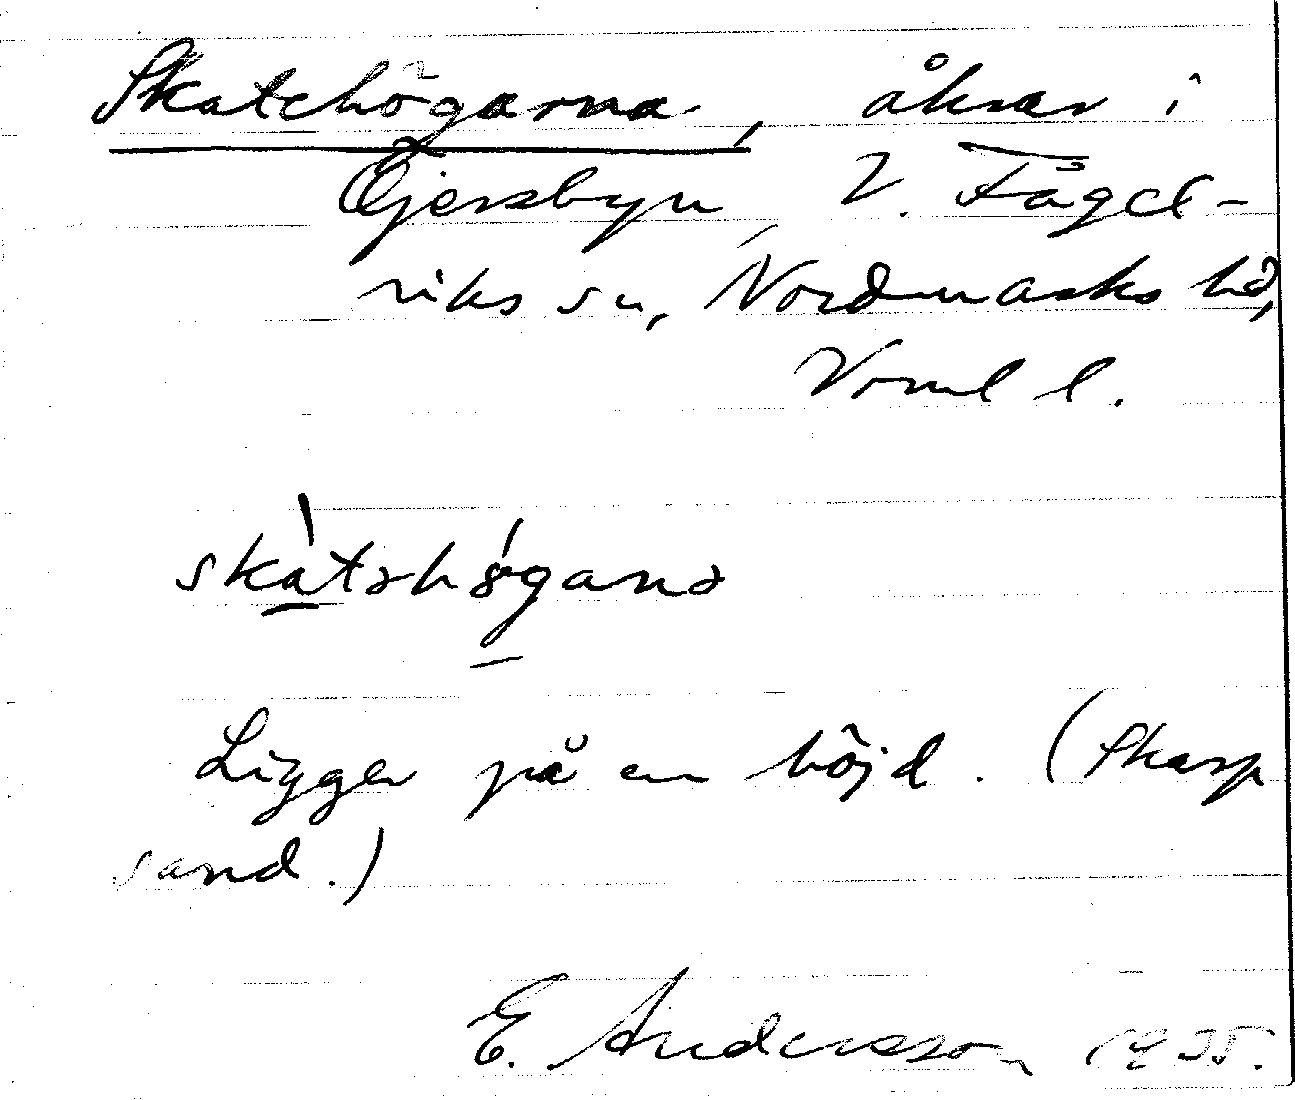 Skatehögarna, åkrar i
Öjersbyn, V. Fågel-
viks sn, Nordmarks hd,
Vrml l.
skàtəhǿganə
Ligger på en höjd. (Skarp
sand.)
E. Andersson 1935.